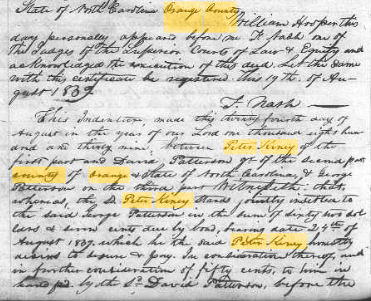 State of North Carolina Orange County
William Hooper this
day personally appeared before me F. Nash one of
the Judges of the Superior Courts of Law & Equity and
acknowledged the execution of this deed. Let the same
with the certificate be registered this 19th. of Au-
gust 1839.
F. Nash
This Indenture, made this twenty fourth day of
August in the year of our Lord one thousand eight hun
dred and thirty nine, between Peter Kiney of the
first part and David Patterson of the second part
county of Orange & State of North Carolina, & George
Patterson on the third part Witnesseth: that,
whereas, the Sd Peter Kiney stands justly indebted to
the said George Patterson in the sum of sixty two dol
lars & seven cents due by bond, bearing date 24th of
August 1839, which he the said Peter Kiney honestly
desires to secure & pay. In consideration thereof, and
in further consideration of fifty cents, to him in
hand pd. by the Sd. David Patterson, before the